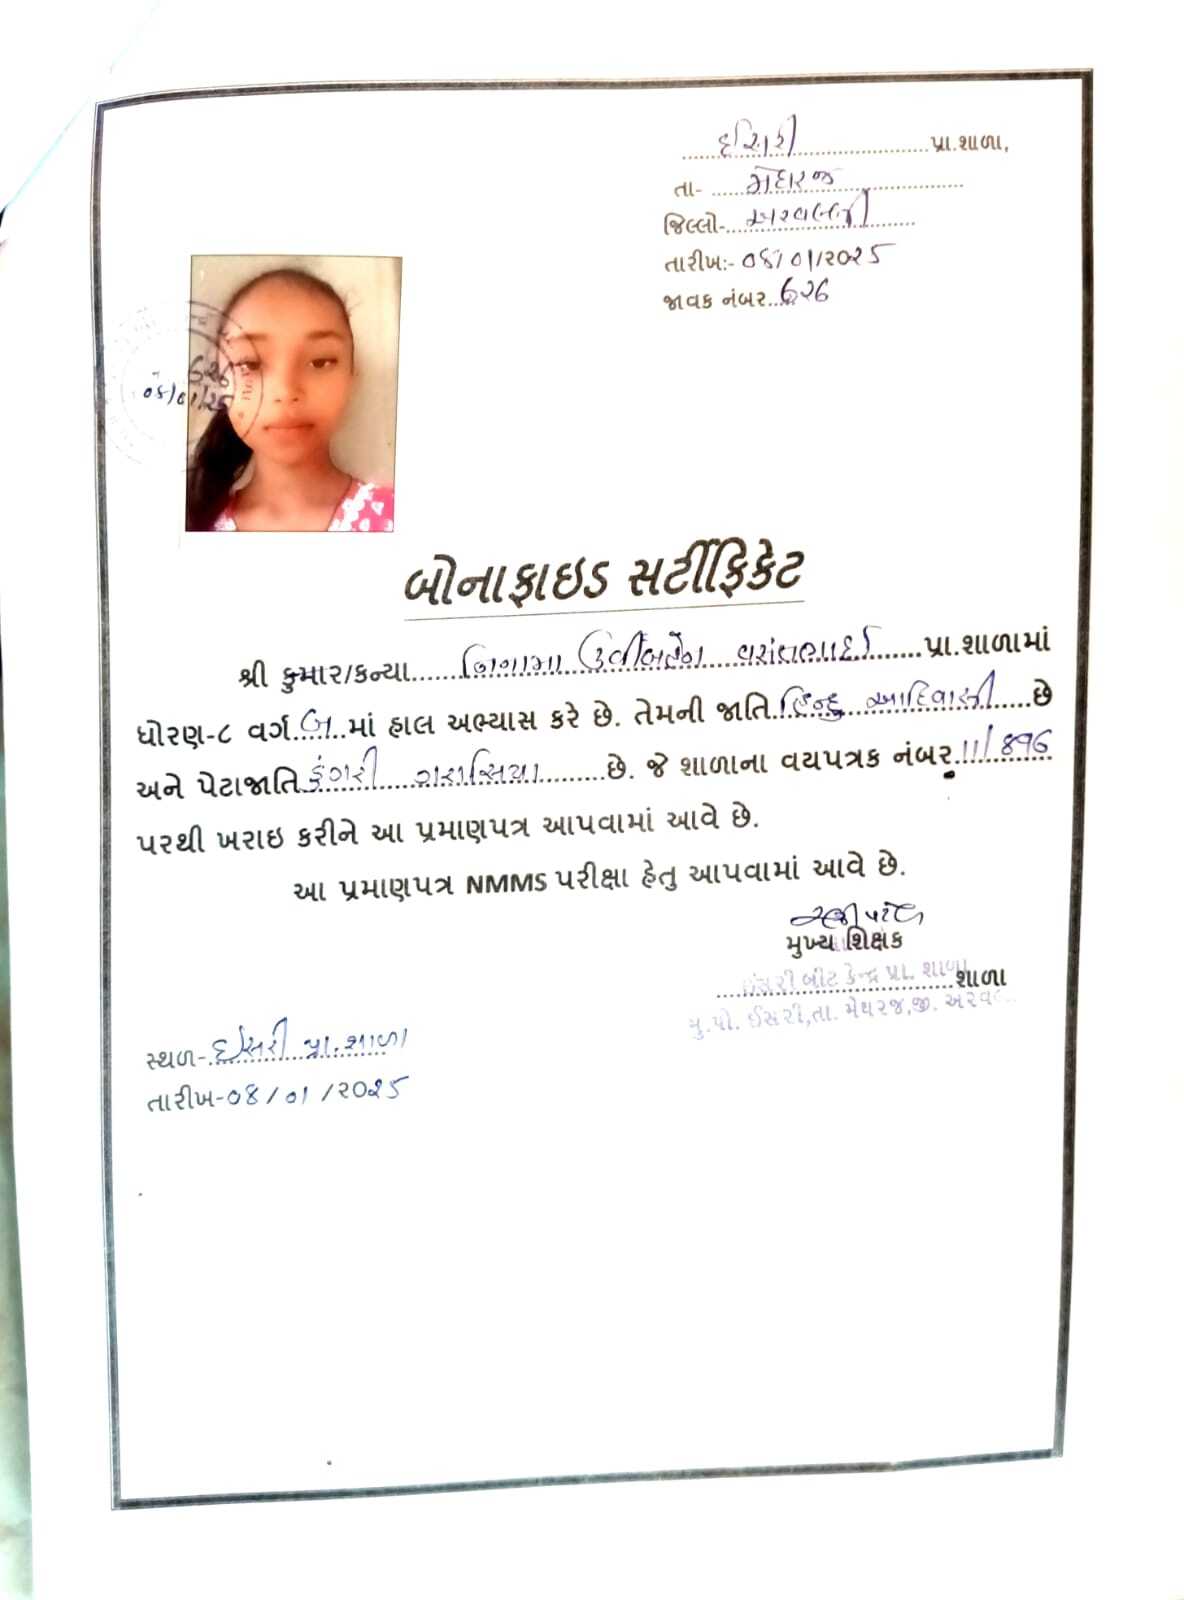 ઇસરી પ્રા.શાળા,
તા- મેઘરજ
જિલ્લો- અરવલ્લી
તારીખ:- ૦૪/૦૧/૨૦૨૫
જાવક નંબર...૬૨૬
૬૨૬
૦૪/૦૧/૨૫
બોનાફાઇડ સર્ટીફિકેટ
શ્રી કુમાર/કન્યા......નિનામા ઉર્વીબહેન ......પ્રા.શાળામાં
ધોરણ-૮ વર્ગ.બ..માં હાલ અભ્યાસ કરે છે. તેમની જાતિ.હિન્દુ આદિવાસી....છે
અને પેટાજાતિ.ડુંગરી ગરાસિયા........છે. જે શાળાના વયપત્રક નંબર.11/896
પરથી ખરાઇ કરીને આ પ્રમાણપત્ર આપવામાં આવે છે.
આ પ્રમાણપત્ર NMMS પરીક્ષા હેતુ આપવામાં આવે છે.
મુખ્ય શિક્ષક
ઇસરી બીટ કેન્દ્ર પ્રા. શાળા શાળા
મુ.પો. ઈસરી,તા. મેઘરજ,જી.
સ્થળ-ઇસરી પ્રા.શાળા
તારીખ-૦૪/૦૧/૨૦૨૫